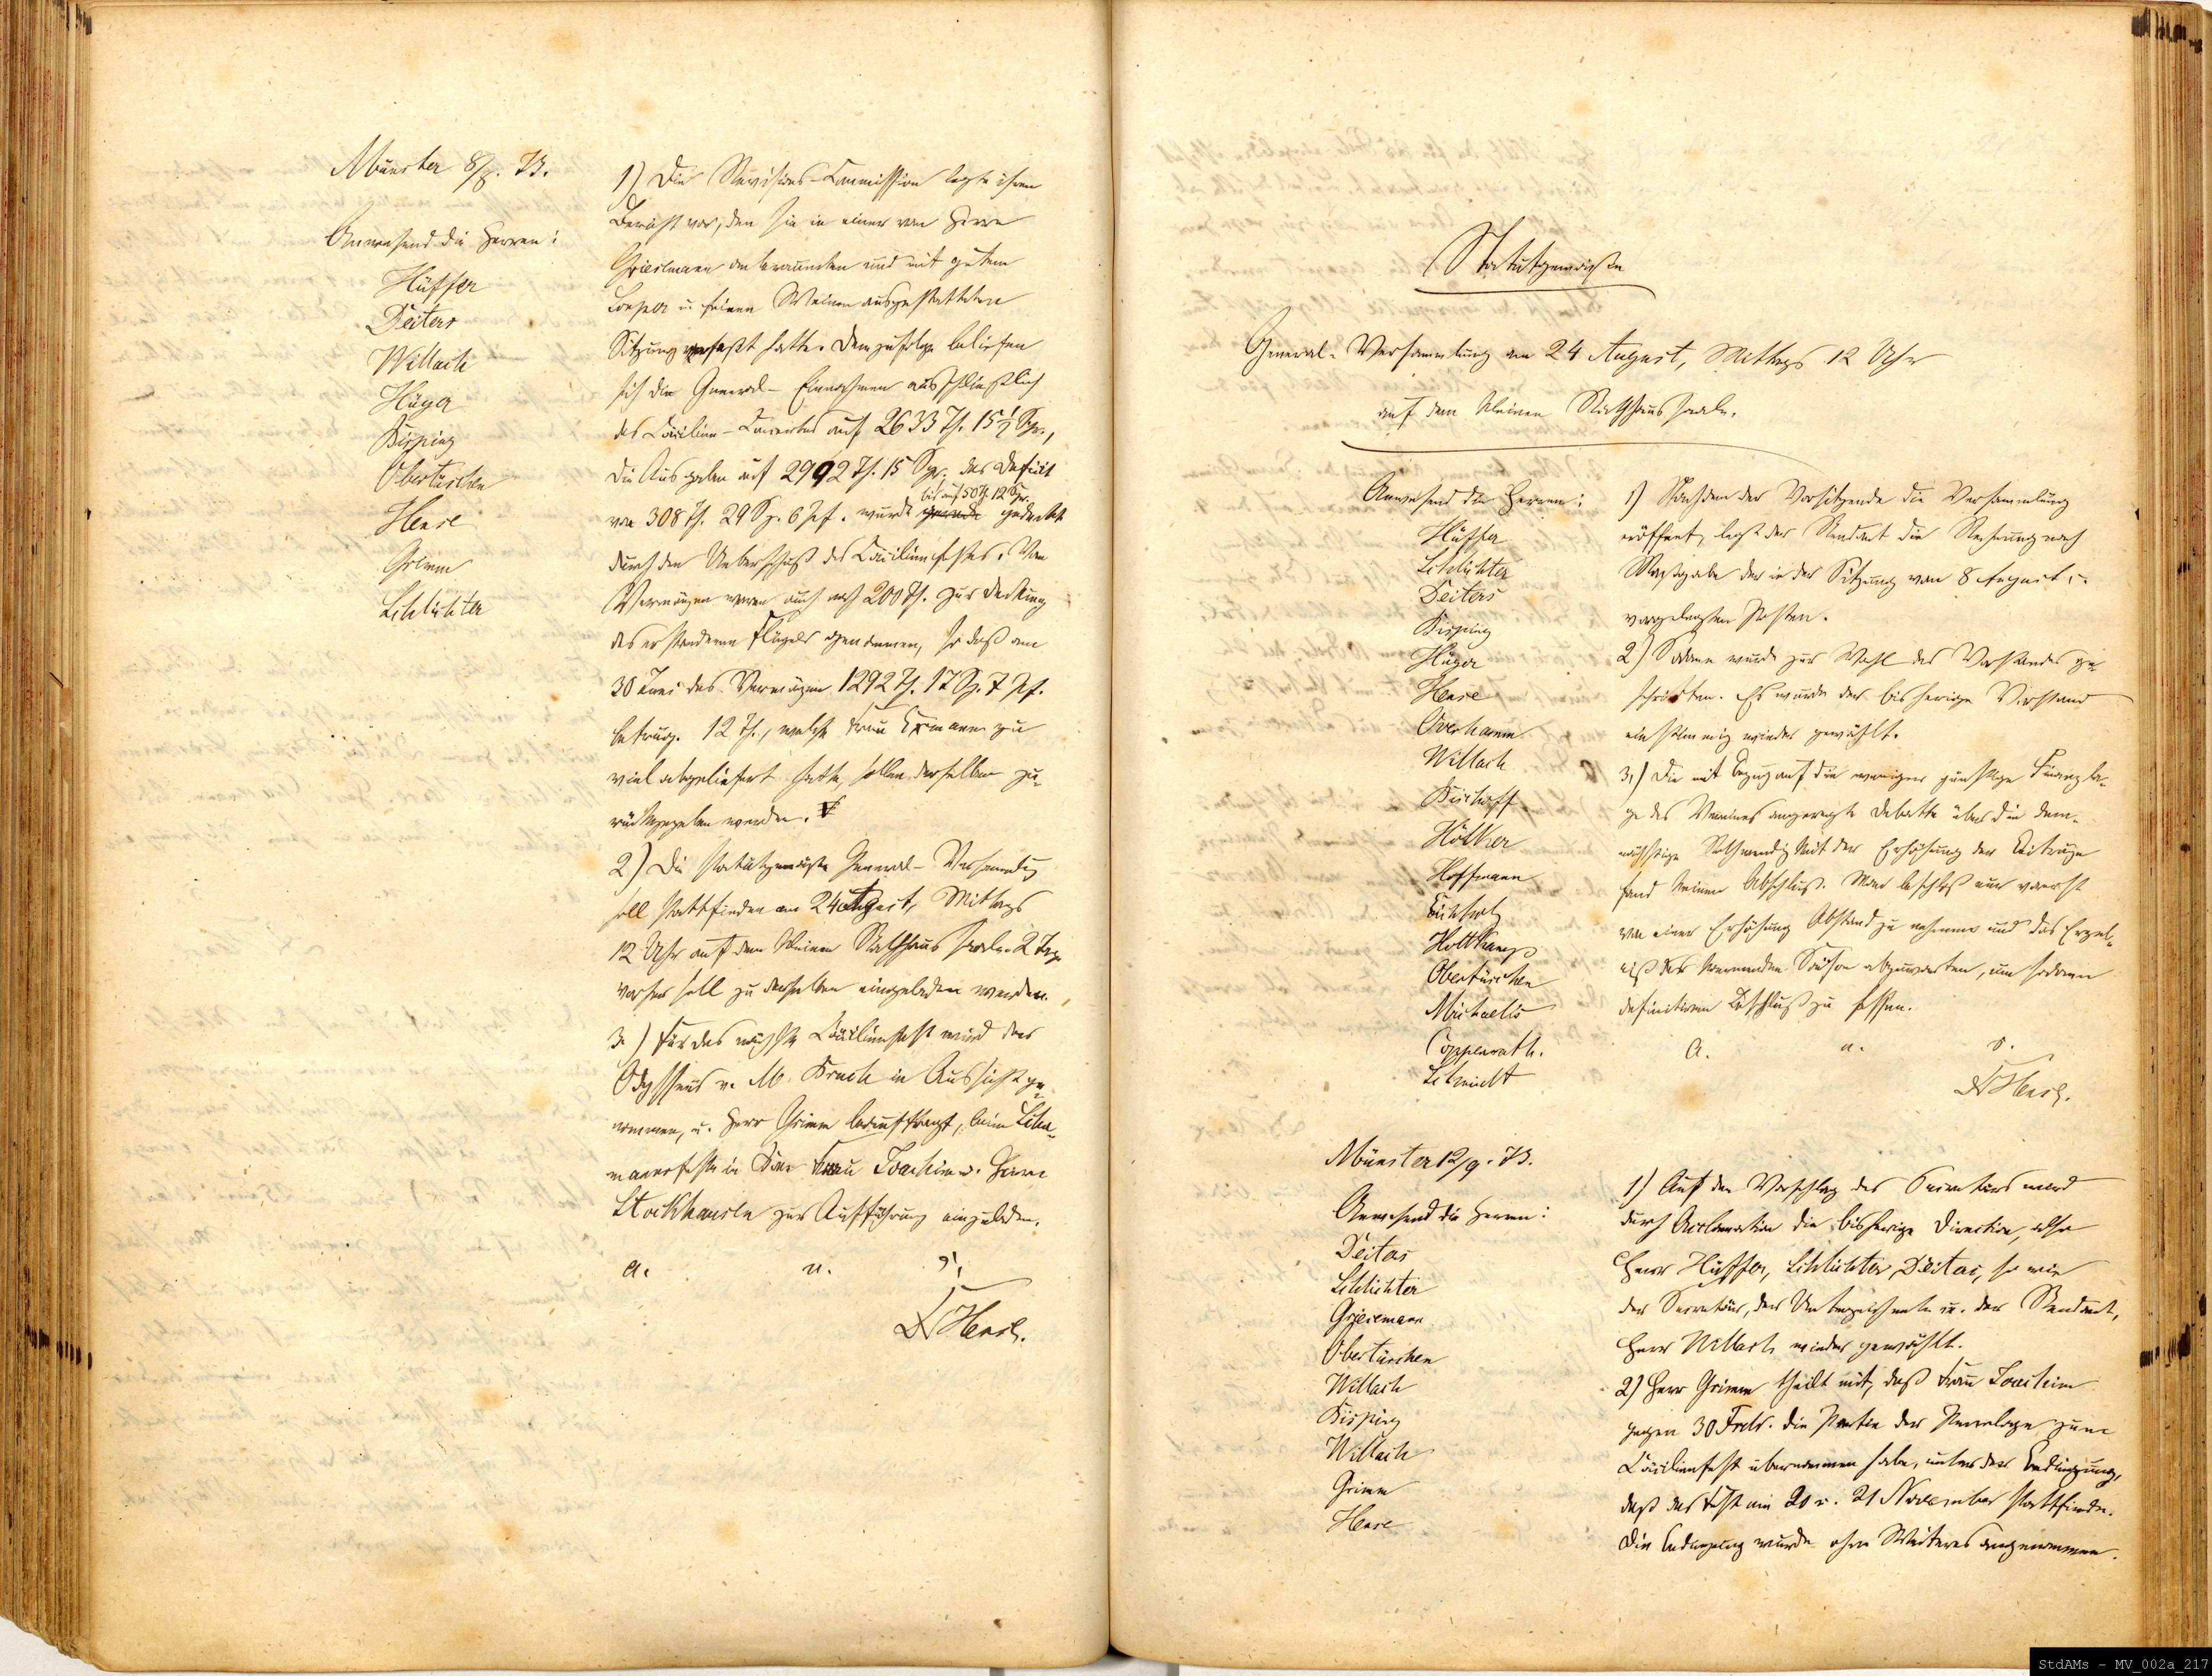 Münster 8/8. 73.
Anwesend die Herren:
Hüffer
Deiters
Willach
Hüger
Kisping
Obertüschen
Hense
Grimm
Schlichter
1) Die Revisions-Commission legte ihren
Bericht vor, den sie in einer von Herrn
Griesemann anberaumten und mit gutem
Souper u. feinen Weinen ausgestatteten
Sitzung verfaßt hatte. Demzufolge beliefen
sich die General-Einnahmen ausschließlich
des Cäcilien-Concertes auf 2633 Th. 15½ Sgr.,
die Ausgaben auf 2992 Th. 15 Sgr., das Deficit
bis auf 50 Th. 12 Sgr.
von 308 Th. 29 Sg. 6 Pf. wurde gedeckt
durch den Ueberschuß des Cäcilienfestes. Vom
Vermögen waren auch noch 200 Th. zur Deckung
des erstandenen Flügels genommen, so daß am
30 Juni das Vermögen 1292 Th. 17 Sg. 7 Pf.
betrug. 12 Th., welche Frau zu
viel abgeliefert hatte, sollen derselben zu-
rückgegeben werden.
2) Die statutgemäße General-Versammlg
soll stattfinden am 24 August, Mittags
12 Uhr auf dem kleinen Rathhaus Saale. 2 Tage
vorher soll zu derselben eingeladen werden.
3.) Für das nächste Cäcilienfest wird der
Odysseus v. M. Bruch in Aussicht ge-
nommen, u. Herr Grimm beauftragt, beim Schu-
mannfeste in Bonn Frau Joachim u. Herrn
Stockhausen zur Aufführung einzuladen.
a. u. s.
Hense.
Statutgemäße
General-Versammlung am 24 August, Mittags 12 Uhr
auf dem kleinen Rathhaussaale.
Anwesend die Herren:
Hüffer
Schlichter
Deiters
Kisping
Hüger
Hense
Overhamm
Willach
Kirchhoff
Hölker
Hoffmann
Eichholz
Holtkamp
Obertüschen
Michaelis
Coppenrath.
Schmidt
1) Nachdem der Vorsitzende die Versammlung
eröffnet, legt der Rendant die Rechnung nach
Maßgabe der in der Sitzung vom 8 August c.
vorgelegten Posten.
2) Sodann wurde zur Wahl des Vorstandes ge-
schritten. Es wurde der bisherige Vorstand
einstimmig wieder gewählt.
3.) Die mit Bezug auf die weniger günstige Finanzla-
ge des Vereines angeregte Debatte über die dem-
nächstige Nothwendigkeit der Erhöhung der Beiträge
fand keinen Abschluß. Man beschloß nur vorerst
von einer Erhöhung Abstand zu nehmen und das Ergeb-
niß der kommenden Saison abzuwarten, um sodann
definitiven Beschluß zu fassen.
a. u. s.
Hense.
Münster 12/9. 73.
Anwesend die Herren:
Deiters
Schlichter
Griesemann
Obertüschen
Willach
Kisping
Willach
Grimm
Hense
1) Auf den Vorschlag des Secretärs ward
durch Acclamation die bisherige Direction, also
Herr Hüffer, Schlichter, Deiters, so wie
der Secretär, der Unterzeichnete u. der Rendant,
Herr Willach wieder gewählt.
2) Herr Grimm theilt mit, daß Frau Joachim
gegen 30 Frdr. die Partie der Penelope zum
Cäcilienfest übernommen habe, unter der Bedingung,
daß das Fest am 20 u. 21 November stattfinde.
Die Bedingung wurde ohne Weiteres angenommen.
StdAMs - MV_002a_217